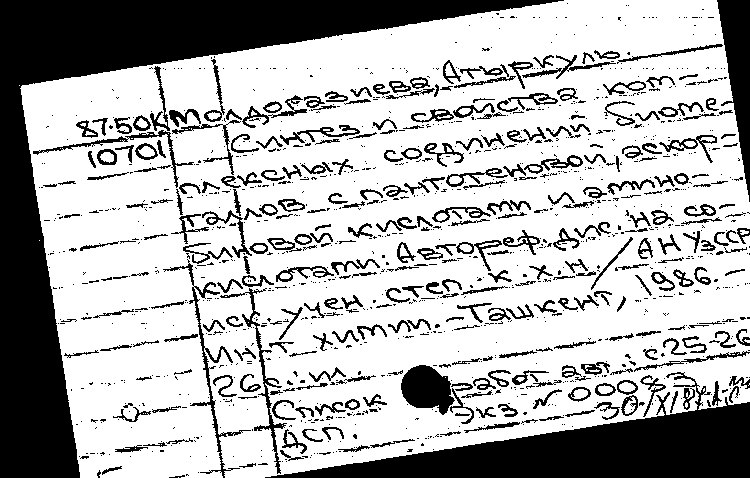 87-50К Молдогазиева, Атыркуль.
10701 Синтез и свойства ком-
плексных соединений биоме-
таллов с пантотеновой, аскор-
биновой кислотами и амино-
кислотами: Автореф. дис. на со-
иск. учен. степ. к.х.н. / АН УзССР
Ин-т химии. - Ташкент, 1986. -
26с.: ил.
Список работ авт.: с.25-26
ДСП. Экз. № 00083
30/X/87